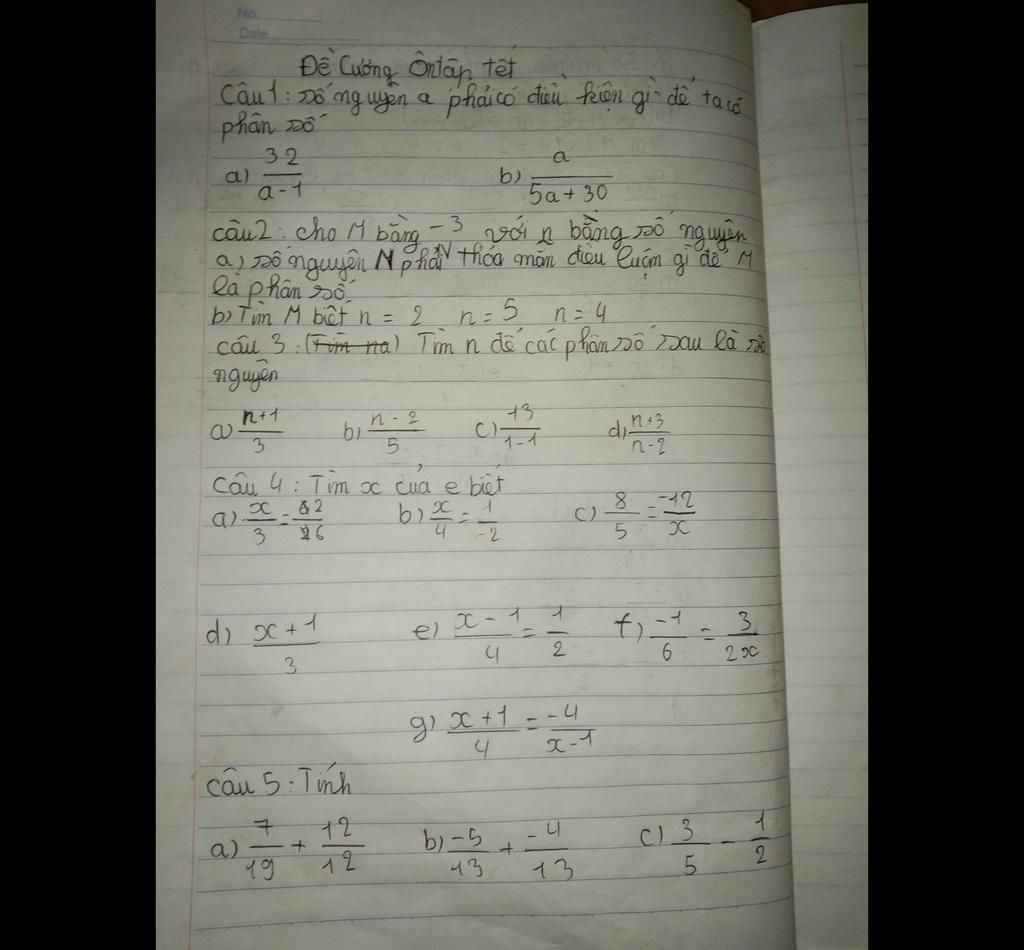 No.
Date
Đề Cương Ôn tập tết
Câu 1: số nguyên a phải có điều kiện gì để ta có
phân số
a) 32/(a-1) b) a/(5a+30)
câu 2: cho M bằng -3 với n bằng số nguyên
a) số nguyên M phải thỏa mãn điều luận gì để M
là phân số
b) Tìm M biết n = 2 n = 5 n = 4
câu 3: (Tìm na) Tìm n để các phân số sau là số
nguyên
a) (n+1)/3 b) (n-2)/5 c) 13/(1-1) d) (n+3)/(n-2)
câu 4: Tìm x của e biết
a) x/3 = 2/6 b) x/4 = 1/-2 c) 8/5 = -12/x
d) (x+1)/3 e) (x-1)/4 = 1/2 f) -1/6 = 3/2x
g) (x+1)/4 = -4/(x-1)
câu 5: Tính
a) 7/19 + 12/12 b) -5/13 + -4/13 c) 3/5 - 1/2